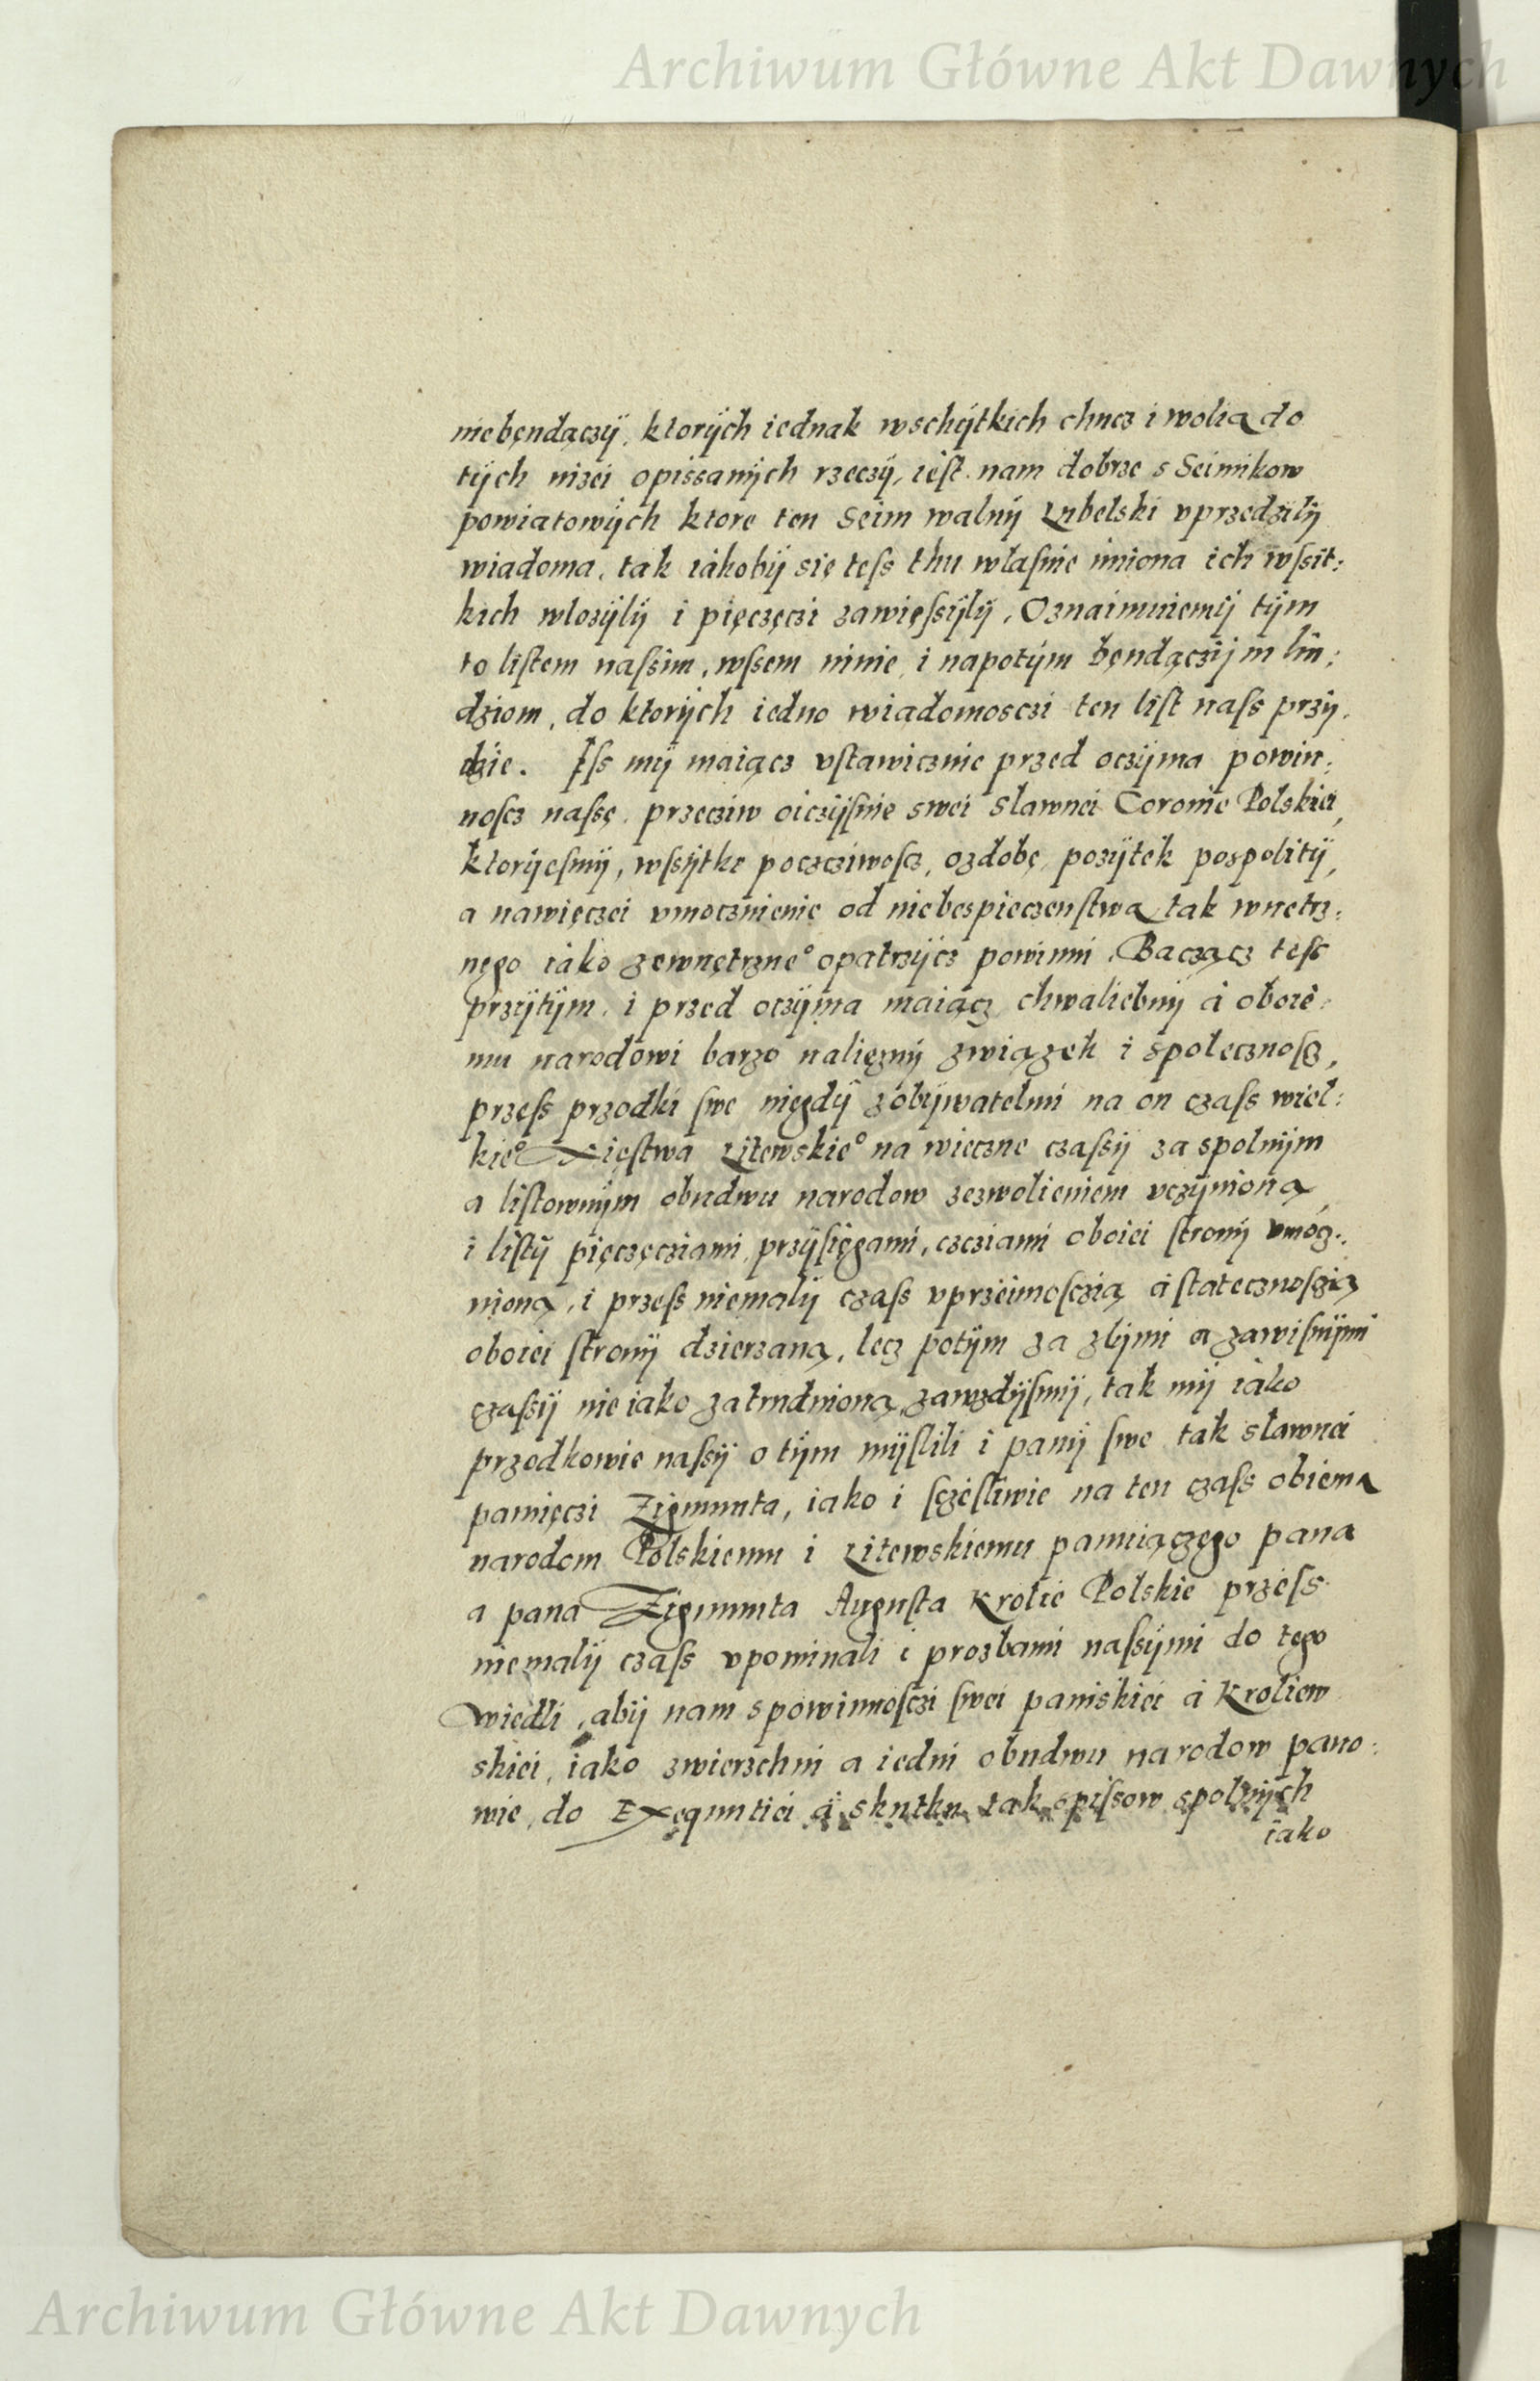 Archiwum Główne Akt Dawnych
niebęndączÿ, ktorÿch iednak wschÿtkich chucz i wolią do
tÿch nizei opissanÿch rzeczÿ, iest nam dobrze s Seimikow
powiatowÿch ktore ten Seim walnÿ Lubelski vprzedzilÿ
wiadoma, tak iakobÿ się teſs thu wlaſnie imiona ich wſsit:
kich wlozÿlÿ i pięczęczi zawięſsÿlÿ, Oznaimuiemÿ tÿm
to liſtem naſsim, wſsem ninie, i napotÿm bęndączÿm liu:
dziom, do ktorÿch iedno wiadomosczi ten liſt naſs przÿ,
dzie. Iſs mÿ maiącz vſtawicznie przed oczÿma powin:
noſcz naſsę, przecziw oiczÿſnie swei slawnei Coronie Polskiei,
ktorÿcſmÿ, wſsÿtkę poczcziwoſcz, ozdobę, pozÿtek pospolitÿ,
a nawięczei vmocznienie od niebespieczenſtwa tak wnetrz:
nęgo iako zewnętrzne° opatrzÿcz powinni, Baczącz teſs
przÿtÿm, i przed oczÿma maiącz chwaliebnÿ a oboie:
mu narodowi barzo nalieznÿ związek i spolecznoſcz,
przeſs przodki ſwe niegdÿ zobÿwatelmi na on czaſs wiel:
kie° Xięſtwa Litewskie° na wieczne czaſsÿ za spolnÿm
a liſtownÿm obudwu narodow zezwolieniem vczÿnioną,
i liſtÿ pięczęcziami, przÿſięgami, czcziami oboiei ſtronÿ vmocz:
nioną, i przeſs niemalÿ czaſs vprzeimoſczią a ſtatecznoſczią
oboiei ſtronÿ dzierzaną, lecz potÿm za zlÿmi a zawiſnÿmi
czaſsÿ nieiako zatrudnioną, zawzdÿſmÿ, tak mÿ iako
przodkowie naſsÿ o tÿm mÿſlili i panÿ ſwe tak slawnei
pamięczi Zigmunta, iako i ſczeſliwie na ten czaſs obiema
narodom Polskiemu i Litewskiemu panuiączęgo pana
a pana Zigmunta Auguſta Krolie Polskie przeſs
niemalÿ czaſs vpominali i prozbami naſsÿmi do tego
wiedli, abÿ nam spowinnoſczi ſwei paniskiei a Kroliew
skiei, iako zwierzchni a iedni obudwu narodow pano:
wie, do Exequutiei a skutku tak spiſsow spolnÿch
iako
Archiwum Główne Akt Dawnych